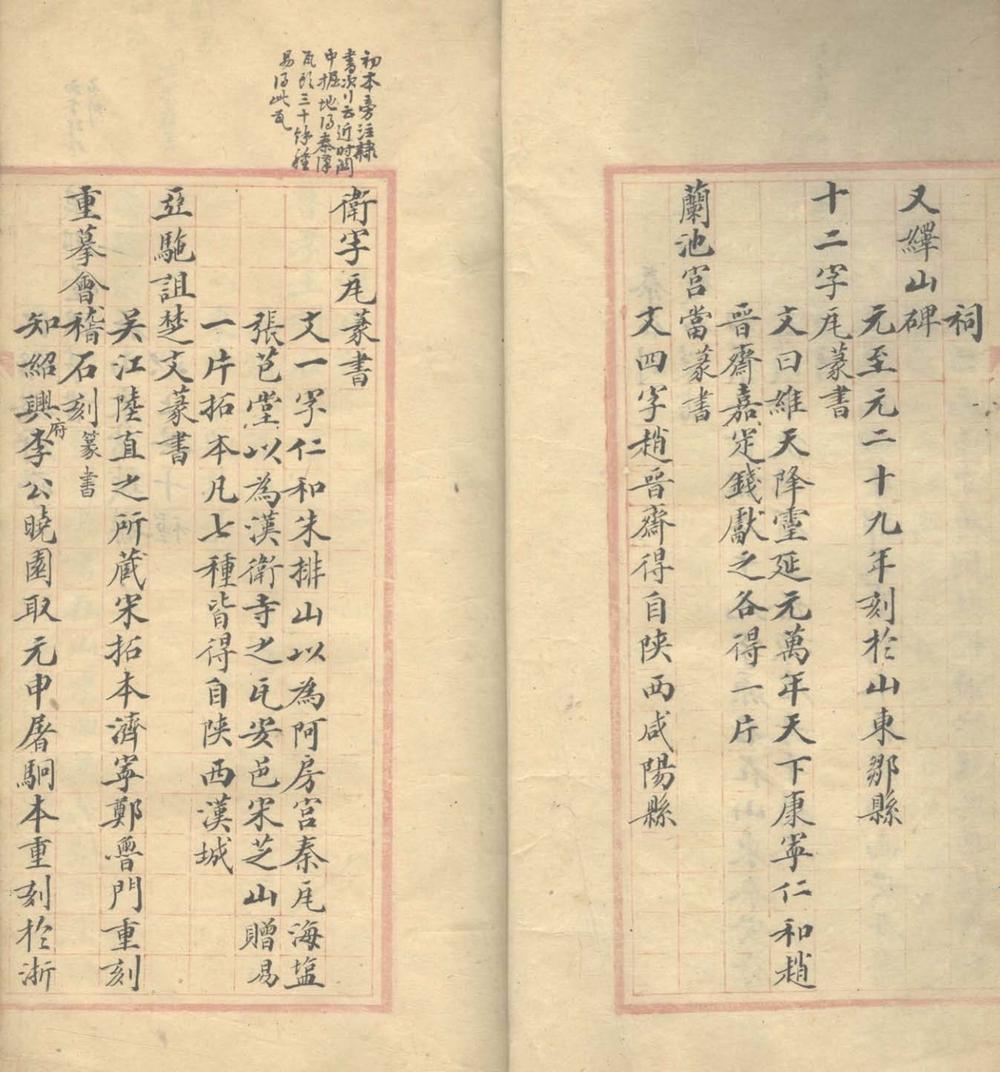 祠
又繹山碑
元至元二十九年刻於山東鄒縣
十二字瓦篆書
文曰維天降靈延元萬年天下康寧仁和趙
晉齋嘉定錢獻之各得一片
蘭池宮當篆書
文四字趙晉齋得自陕西咸陽縣
初本旁注隸
書次行云近時関
中掘地得秦漢
瓦頭三十餘種
易得此瓦
衛字瓦篆書
文一字仁和朱排山以為阿房宮秦瓦海塩
張芑堂以為漢衛寺之瓦安邑宋芝山贈易
一片拓本凡七種皆得自陕西漢城
亞駞詛楚文篆書
吴江陸直之所蔵宋拓本濟寧鄭魯門重刻
重摹會稽石刻篆書
知紹興府李公曉園取元申屠駉本重刻於浙